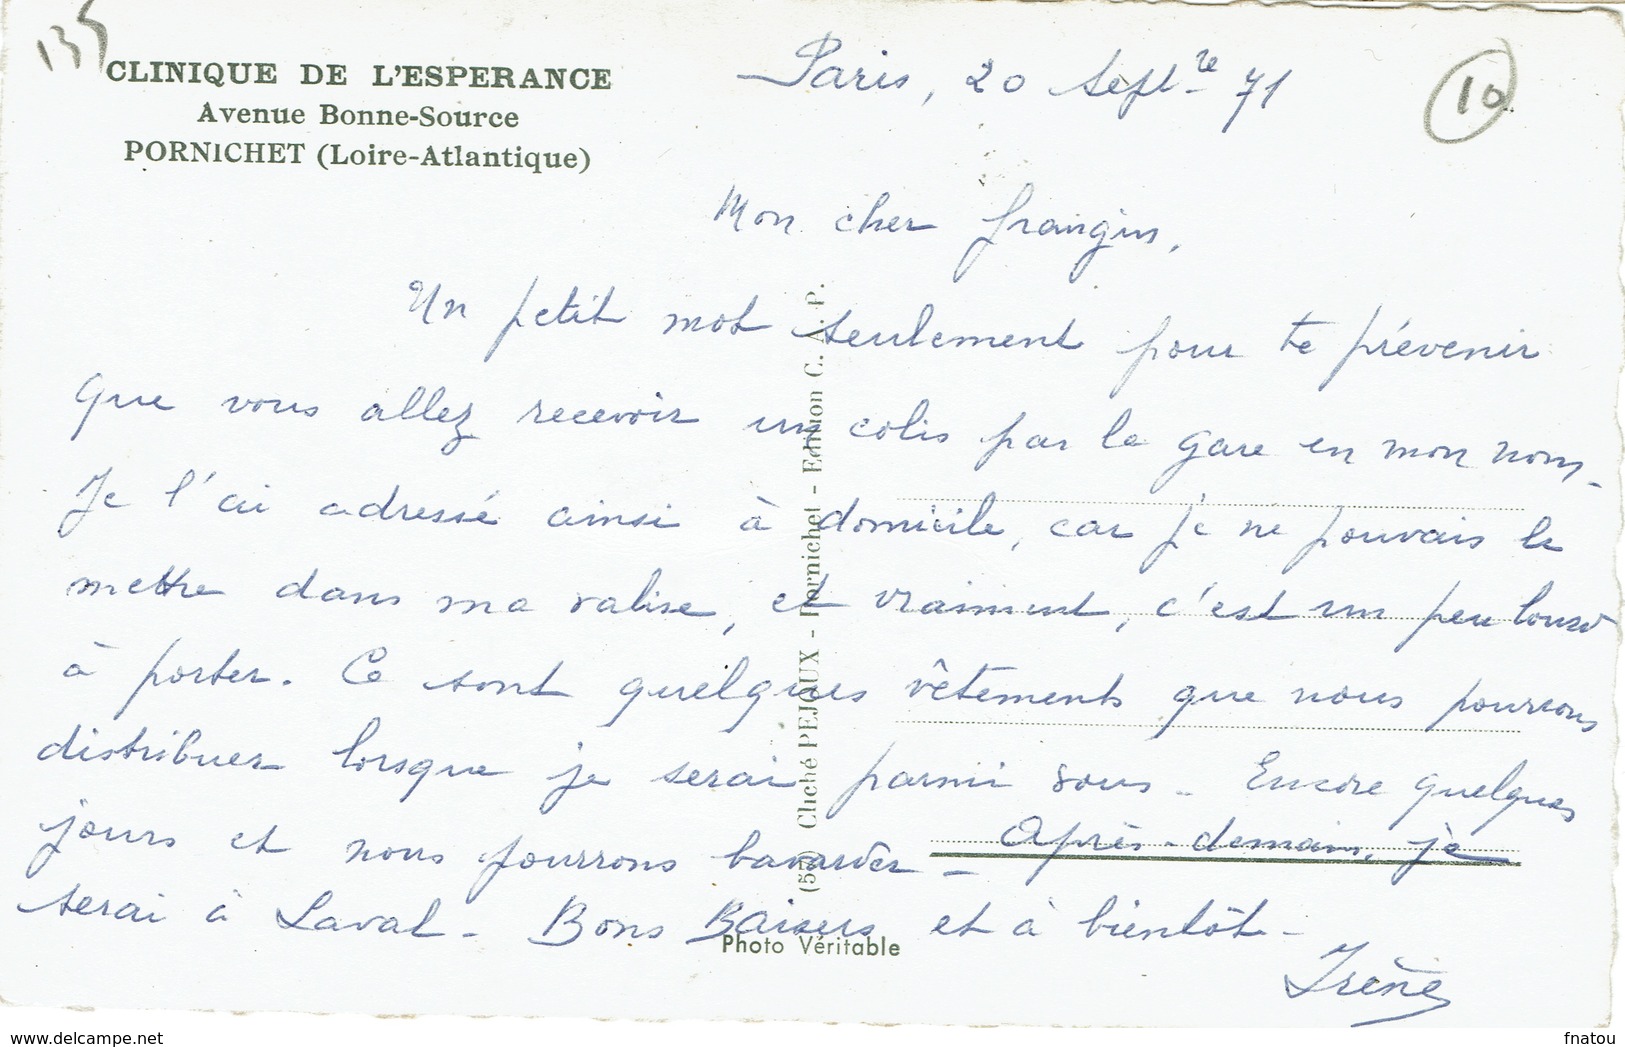 135
CLINIQUE DE L'ESPERANCE
Avenue Bonne-Source
PORNICHET (Loire-Atlantique)
Paris, 20 Sept-re 71
10
Mon cher frangin,
Un petit mot seulement pour te prévenir
que vous allez recevoir un colis par la gare en mon nom-
Je l'ai adressé ainsi à domicile, car je ne pouvais le
mettre dans ma valise, et vraiment, c'est un peu lourd
à porter. Ce sont quelques vêtements que nous pourrons
distribuer lorsque je serai parmi vous - Encore quelques
jours et nous pourrons bavarder - Après-demain, je
serai à Laval - Bons Baisers et à bientôt -
Irène
(57) Cliché PEJOUX - Pornichet - Edition C. A. P.
Photo Véritable
https://www.delcampe.net
fnatou